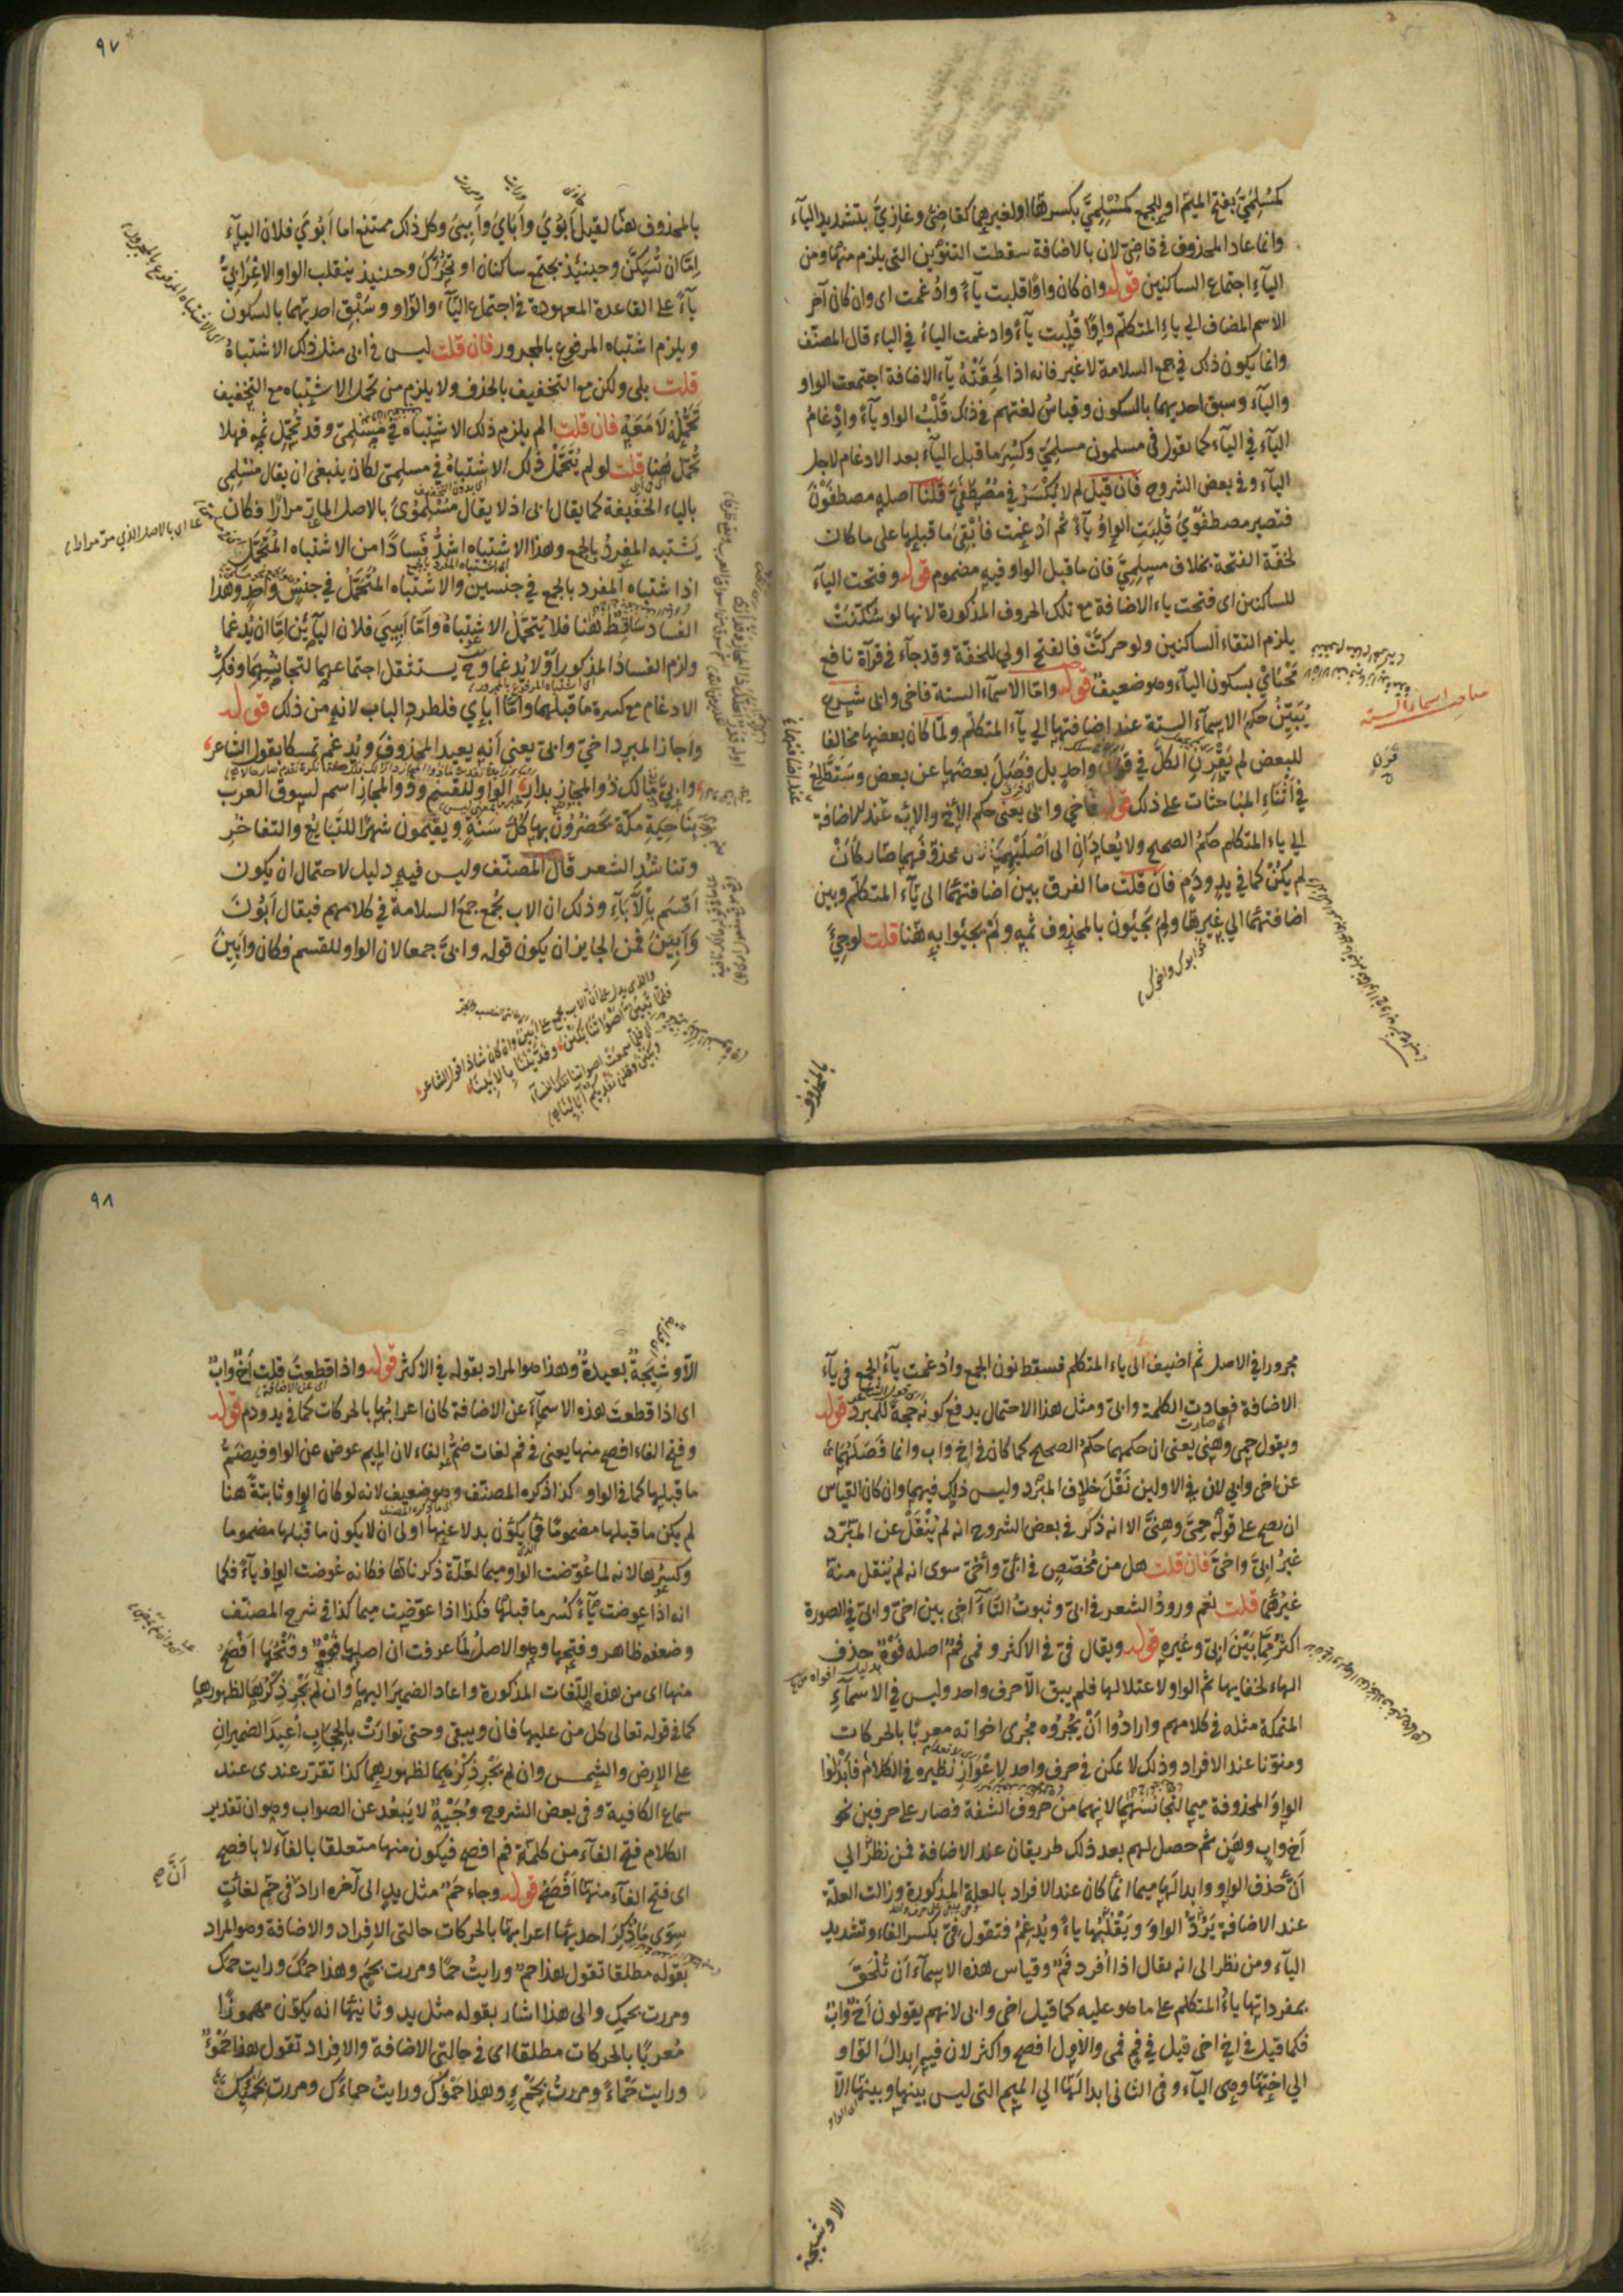 كمُسْلِمَيَّ بفتح الميم او للجمع كمُسْلِمِيَّ بكسرها او لغيرهما كقاضِيَّ وغازِيَّ بتشديد اليآء
وانما عاد المحذوف في قاضيّ لان بالاضافة سقطت التنوين التي يلزم منها ومن
اليآءِ اجتماع الساكنين قوله وان كان واوًا قلبت يآءً وادُغمت اى وان كان آخر
الاسم المضاف الي ياءِ المتكلّم واوًا قُلِبت يآءً وادغمت الياءُ في الياء قال المصنّف
وانما يكون ذلك في جمع السلامة لا غير فانه اذا لَحِقَتْهُ يآء الاضافة اجتمعت الواو
واليآء وسبق احديهما بالسكون وقياسُ لغتهم في ذلك قَلْبُ الواو يآءً وادْغامُ
اليآءِ في اليآء كما نقول في مسلمون مسلِمِيَّ وكُسِرَ ما قبل اليآء بعد الادغام لاجل
اليآء وفي بعض الشروح فَان قيل لم لا يُكْسَرُ في مُصْطَفَيَّ قلنا اصله مصطفَوْنَ
فتصير مصطفَوْيَ قُلِبَتِ الواوُ يآءً ثم ادْغِمت فأبْقِيَ ما قبلها على ما كان
لخفّة الفتحة بخلاف مسلِمِيَّ فان ما قبل الواو فيه مضموم قوله وفتحت اليآء
للساكنين اى فتحت ياء الاضافة مع تلك الحروف المذكورة لانها لو سُكّنَتْ
يلزم التقاء الساكنين ولو حركتَّ فالفتح اولي للخفّة وقد جآء في قرآة نافع
مَحْيَايْ بسكون اليآء وهو ضعيف قوله وامّا الاسمآء الستة فاخي وابى شرع
يُبَيِّنُ حكمَ الاسمآء الستة عند اضافتها الى يآء المتكلّم ولمّا كان بعضها مخالفا
للبعض لم يَقْرِنِ الكلَّ في قَرَنٍ واحدٍ بل فَصَلَ بعضَها عن بعض وسَتَطَّلِعُ
في أثْنَاءِ المبَاحثات على ذلك قوله فاخي وابى يعنى حكم الأخ والاب عند الاضافة
الي ياء المتكلم حكمُ الصحيح ولا يُعادَانِ الى اَصْلَيْهِمَا محذوفَهما صار كأنْ
لم يكنْ كما في يدٍ ودَمٍ فان قلت ما الفرق بين اضافتهما الى يآء المتكلّم وبين
اضافتهما الي غيرها ولِمَ يَجيئون بالمحذوف ثمه ولم يجيئوا به هنا قلت لو جيءَ
بالمحذوف
مباحث اسماء الستة
نحو ابوك واخوك
٩٧
بالمحذوف هنا لقيل أبُوْيَ وأبَايَ وأبِيىَ وكل ذلك ممتنع اما أبُوْيَ فلان اليآء
امّا ان تُسَكَّنَ وحينئذ يجتمع ساكنان او تُحَرَّكَ وحينئذ ينقلب الواو الاِعْرَابيُّ
يآءً على القاعدة المعهودة في اجتماع اليآء والواو وسَبْقِ احديهما بالسكون
ويلزم اشتباه المرفوع بالمجرور فان قلت ليس في ابى مثل ذلك الاشتباهُ
قلت بلى ولكن مع التخفيف بالحذف ولا يلزم من تحمّل الاشتباه مع التخفيف
تَحَمُّلُهُ لَا مَعَهُ فان قلت الم يلزم ذلك الاشتباه في مُسْلِمِيَّ وقد تُحُمِّلَ ثَمّه فهلا
تُحُمّل هُنا قلت لو لم يُتَحَمَّلْ ذلك الاشتباهُ في مسلِمِيَّ لكان ينبغى ان يقال مُسْلِمِي
بالياء الخفيفة كما يقال ابى اذ لا يقال مُسْلِمُوْىَ بالاصل المارّ مرارًا فكان
يَشتبه المفردُ بالجمع وهذا الاشتباه اشدُّ فَسادًا من الاشتباه المُتَحَمَّل
اذ اشتباه المفرد بالجمع في جنسين والاشتباه المُتَحَمَّلُ في جنسٍ واحدٍ وهذا
الفساد سَاقِطٌ هُنا فلا يُتَحَمَّلُ الاشتباهُ وَاَمّا أبِييَ فلان اليآئَيْنِ امّا ان يُدغما
ولزم الفسادُ المذكور اَوْ لا يُدغما وح يستثقل اجتماعهما لتجانسهما وفَكِّ
الادغام مع كسرة ما قبلهما واَمّا أباىَ فلطردِ الباب لانه من ذلك قوله
واجاز المبرد اخيَّ وابيَّ يعني أنه يعيد المحذوفَ ويُدغم تمسكا بقول الشاعر
وابيَّ مالك ذو المجاز بدار الواو للقسم وذو المجاز اسم لسوق العرب
بنَاحِيةِ مكّة يَحْضُرُونَ بها كلَّ سَنَةٍ ويقيمون شهرًا للتبايُعِ والتفاخُرِ
وتناشُدِ الشعر قال المصنّف وليس فيه دليل لاحتمال ان يكون
اَقسَم بالْآبَآءِ وذلك ان الاب يجمع جمعَ السلامة في كلامهم فيقال أبُونَ
وَاَبِينَ فمن الجايز ان يكون قوله وابيَّ جمعا لان الواو للقسم فكان وابين
والذى يدل على ان الاب يجمع على ابين وان كان شاذا قول الشاعر
فلمّا تَبَيَّنَّ أصْواتَنا بَكَيْنَ وفَدَّيْنَنَا بِالْأَبِينَا
مجرورا في الاصل ثم اضيف الى ياء المتكلم فسقط نون الجمع وادغمت ياءُ الجمع في يآء
الاضافة فعادت الكلمة وابيّ ومثل هذا الاحتمال يدفع كونه حجةً للمبرد قوله
ويقول حمِى وهَنِى يعنى ان حكمهما حكم الصحيح كما كان في اخ واب وانما فَصَلَهُمَا
عن اخى وابي لان في الاولين نَقْلَ خلاف المبرّد وليس ذلك فيهما وان كان القياس
ان يصح على قوله حمِيَّ وهنِيَّ الا انه ذكر في بعض الشروح انه لم يُنْقَلْ عن المبرّد
غيرُ ابيَّ واخيَّ فان قلت هل من مُخصّصٍ في ابيّ وأخيّ سوى انه لم يُنقل منه
غيرُهما قلت نعم ورودُ الشعر في ابيّ وثبوتُ التَّآخى بين اخيّ وابيّ في الصورة
اكثرُ مِمّا بَيْنَ ابيّ وغيره قوله ويقال فيّ في الاكثر وفمى فمٌ اصله فَوْهٌ حذف
الهاء لخفايها ثم الواو لاعتلالها فلم يبق الّا حرف واحد وليس في الاسمآء
المتمكة مثله في كلامهم وارادُوا اَنْ يُجْرُوه مُجْرى اخواته معربًا بالحركات
ومنوّنا عند الافراد وذلك لا يمكن في حرف واحد لاِعْوَازِ نظيره في الكلام فأبدلُوا
الواوَ المحذوفة ميما لتجانُسهما لانهما من حروف الشفة فصار على حرفين نحو
أخٍ وابٍ وهَنٍ ثم حصل لهم بعد ذلك طريقان عند الاضافة فمن نظرَ الي
اَنَّ حذف الواو وابدالَها ميما انّما كان عند الافراد بالعلة المذكورة وزالت العلّة
عند الاضافة يَرُدُّ الواوَ ويَقْلِبُها ياءً ويُدغِمُ فتقول فِيّ بكسر الفاء وتشديد
اليآء ومن نظر الى انه يقال اذا اُفرد فَمٌ وقياس هذه الاسمآء اَن تُلْحَقَ
بمفرداتها ياءُ المتكلم على ما هو عليه كما قيل اخى وابى لانهم يقولون اَخٌ وابٌ
فكما قيل في اخ اخى قيل في فمٍ فمى والاول افصح واكثر لان فيه ابدالَ الواو
الي اختِها وهى اليآء وفى الثانى ابدالَها الي الميم التى ليس بينها وبينها الّا
الاوشيجة
٩٨
الّا وشِيْجَةٌ بعيدةٌ وهذا هو المراد بقوله في الاكثر قوله واذا قطعتَ قلت اَخٌ وابٌ
اى اذا قطعتَ هذه الاسمآءَ عن الاضافة كان اعرابُها بالحركات كما في يد ودم قوله
وفتح الفاء افصح منها يعنى في فم لغات ضمُّ الفاء لان الميم عوض عن الواو فيضمّ
ما قبلها كما في الواو كذا ذكره المصنّف وهو ضعيف لانه لو كان الواو ثابتةً هنا
لم يكن ما قبلها مضمومًا فما يكون بدلا عنها اولى ان لا يكون ما قبلها مضموما
وكسرُها لانه لما عُوّضت الواو ميما لعلّة ذكرناها فكانه عُوضت الواو يآءً فكما
انه اذا عوضت يآءً كُسر ما قبلها فكذا اذا عوّضت ميما كذا في شرح المصنّف
وضعفه ظاهر وفتحها وهو الاصلُ لما عرفت ان اصلها فَوْهٌ وفَتْحُهَا اَفْصَحُ
منها اى من هذه اللّغات المذكورة واعاد الضميرَ اليها وان لم يَجْرِ ذِكْرُها لظهورها
كما في قوله تعالى كل من عليها فان ويبقى وحتى توارَتْ بالحِجابِ اُعِيدَ الضميرانِ
على الارض والشمس وان لم يَجْرِ ذِكْرُهما لظهورهما كذا تقرّر عندى عند
سماع الكافية وفى بعض الشروح وُجَيْهٌ لا يَبعُد عن الصواب وهو ان تقدير
الكلام فتح الفآء من كلمة فم افصح فيكون منها متعلقا بالفآء لا بافصح
اى فتح الفآء منها اَفْصَحُ قوله وجاء حَمٌ مثل يدٍ الى آخره اراد في حَمٍ لغات
سِوَى مَا ذُكِرَ احديها اعرابها بالحركات حالتى الافراد والاضافة وهو المراد
بقوله مطلقا تقول هذا حمٌ ورايتُ حمًا ومررت بحمٍ وهذا حمُكَ ورايت حمَك
ومررت بحمِك والى هذا اشار بقوله مثل يد وثانيها انه يكون مهموزًا
مُعربًا بالحركات مطلقا اى في حالتى الاضافة والافراد تقول هذا حَمْؤٌ
ورايت حَمْاءً ومررتُ بحَمْءٍ وهذا حَمْؤُكَ ورايتُ حماءَك ومررت بحَمْئِكَ
اَنَّ صح